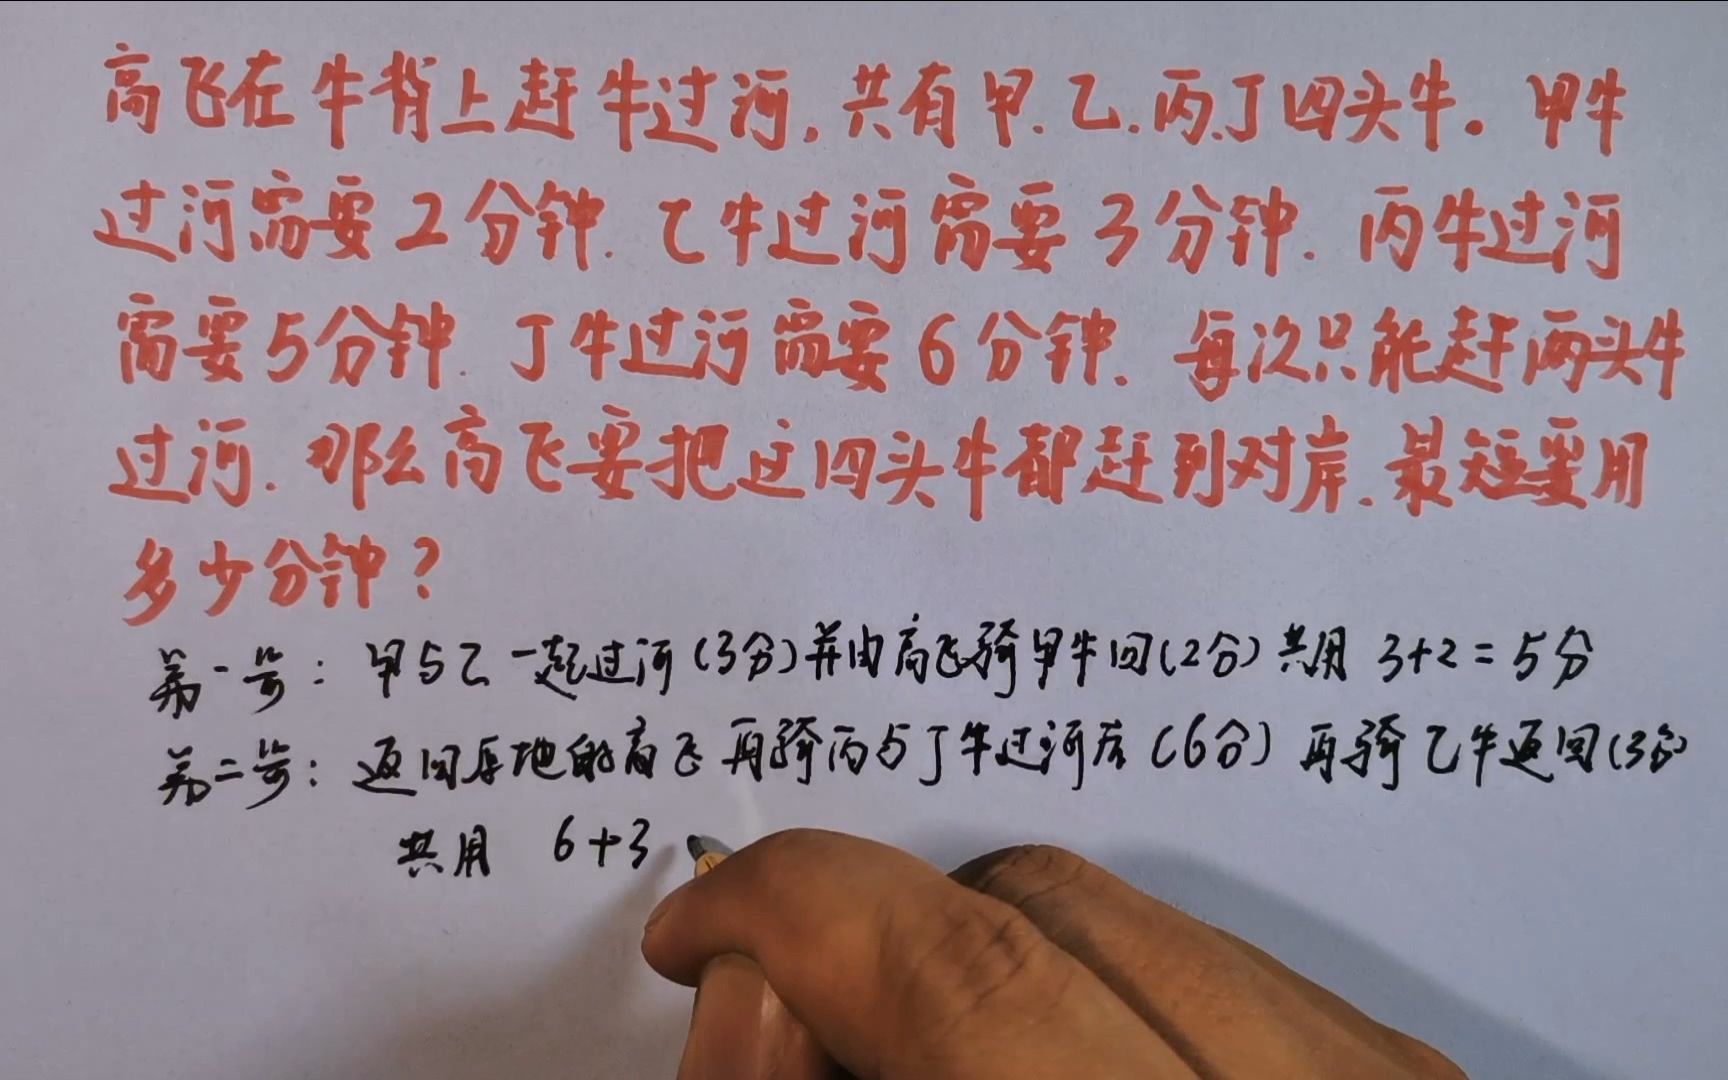 高飞在牛背上赶牛过河，共有甲.乙.丙.丁四头牛。甲牛
过河需要2分钟.乙牛过河需要3分钟.丙牛过河
需要5分钟.丁牛过河需要6分钟.每次只能赶两头牛
过河.那么高飞要把这四头牛都赶到对岸.最短要用
多少分钟？
第一步：甲与乙一起过河(3分)并由高飞骑甲牛回(2分)共用 3+2=5分
第二步：返回原地的高飞再骑丙与丁牛过河后(6分)再骑乙牛返回(3分)
共用 6+3